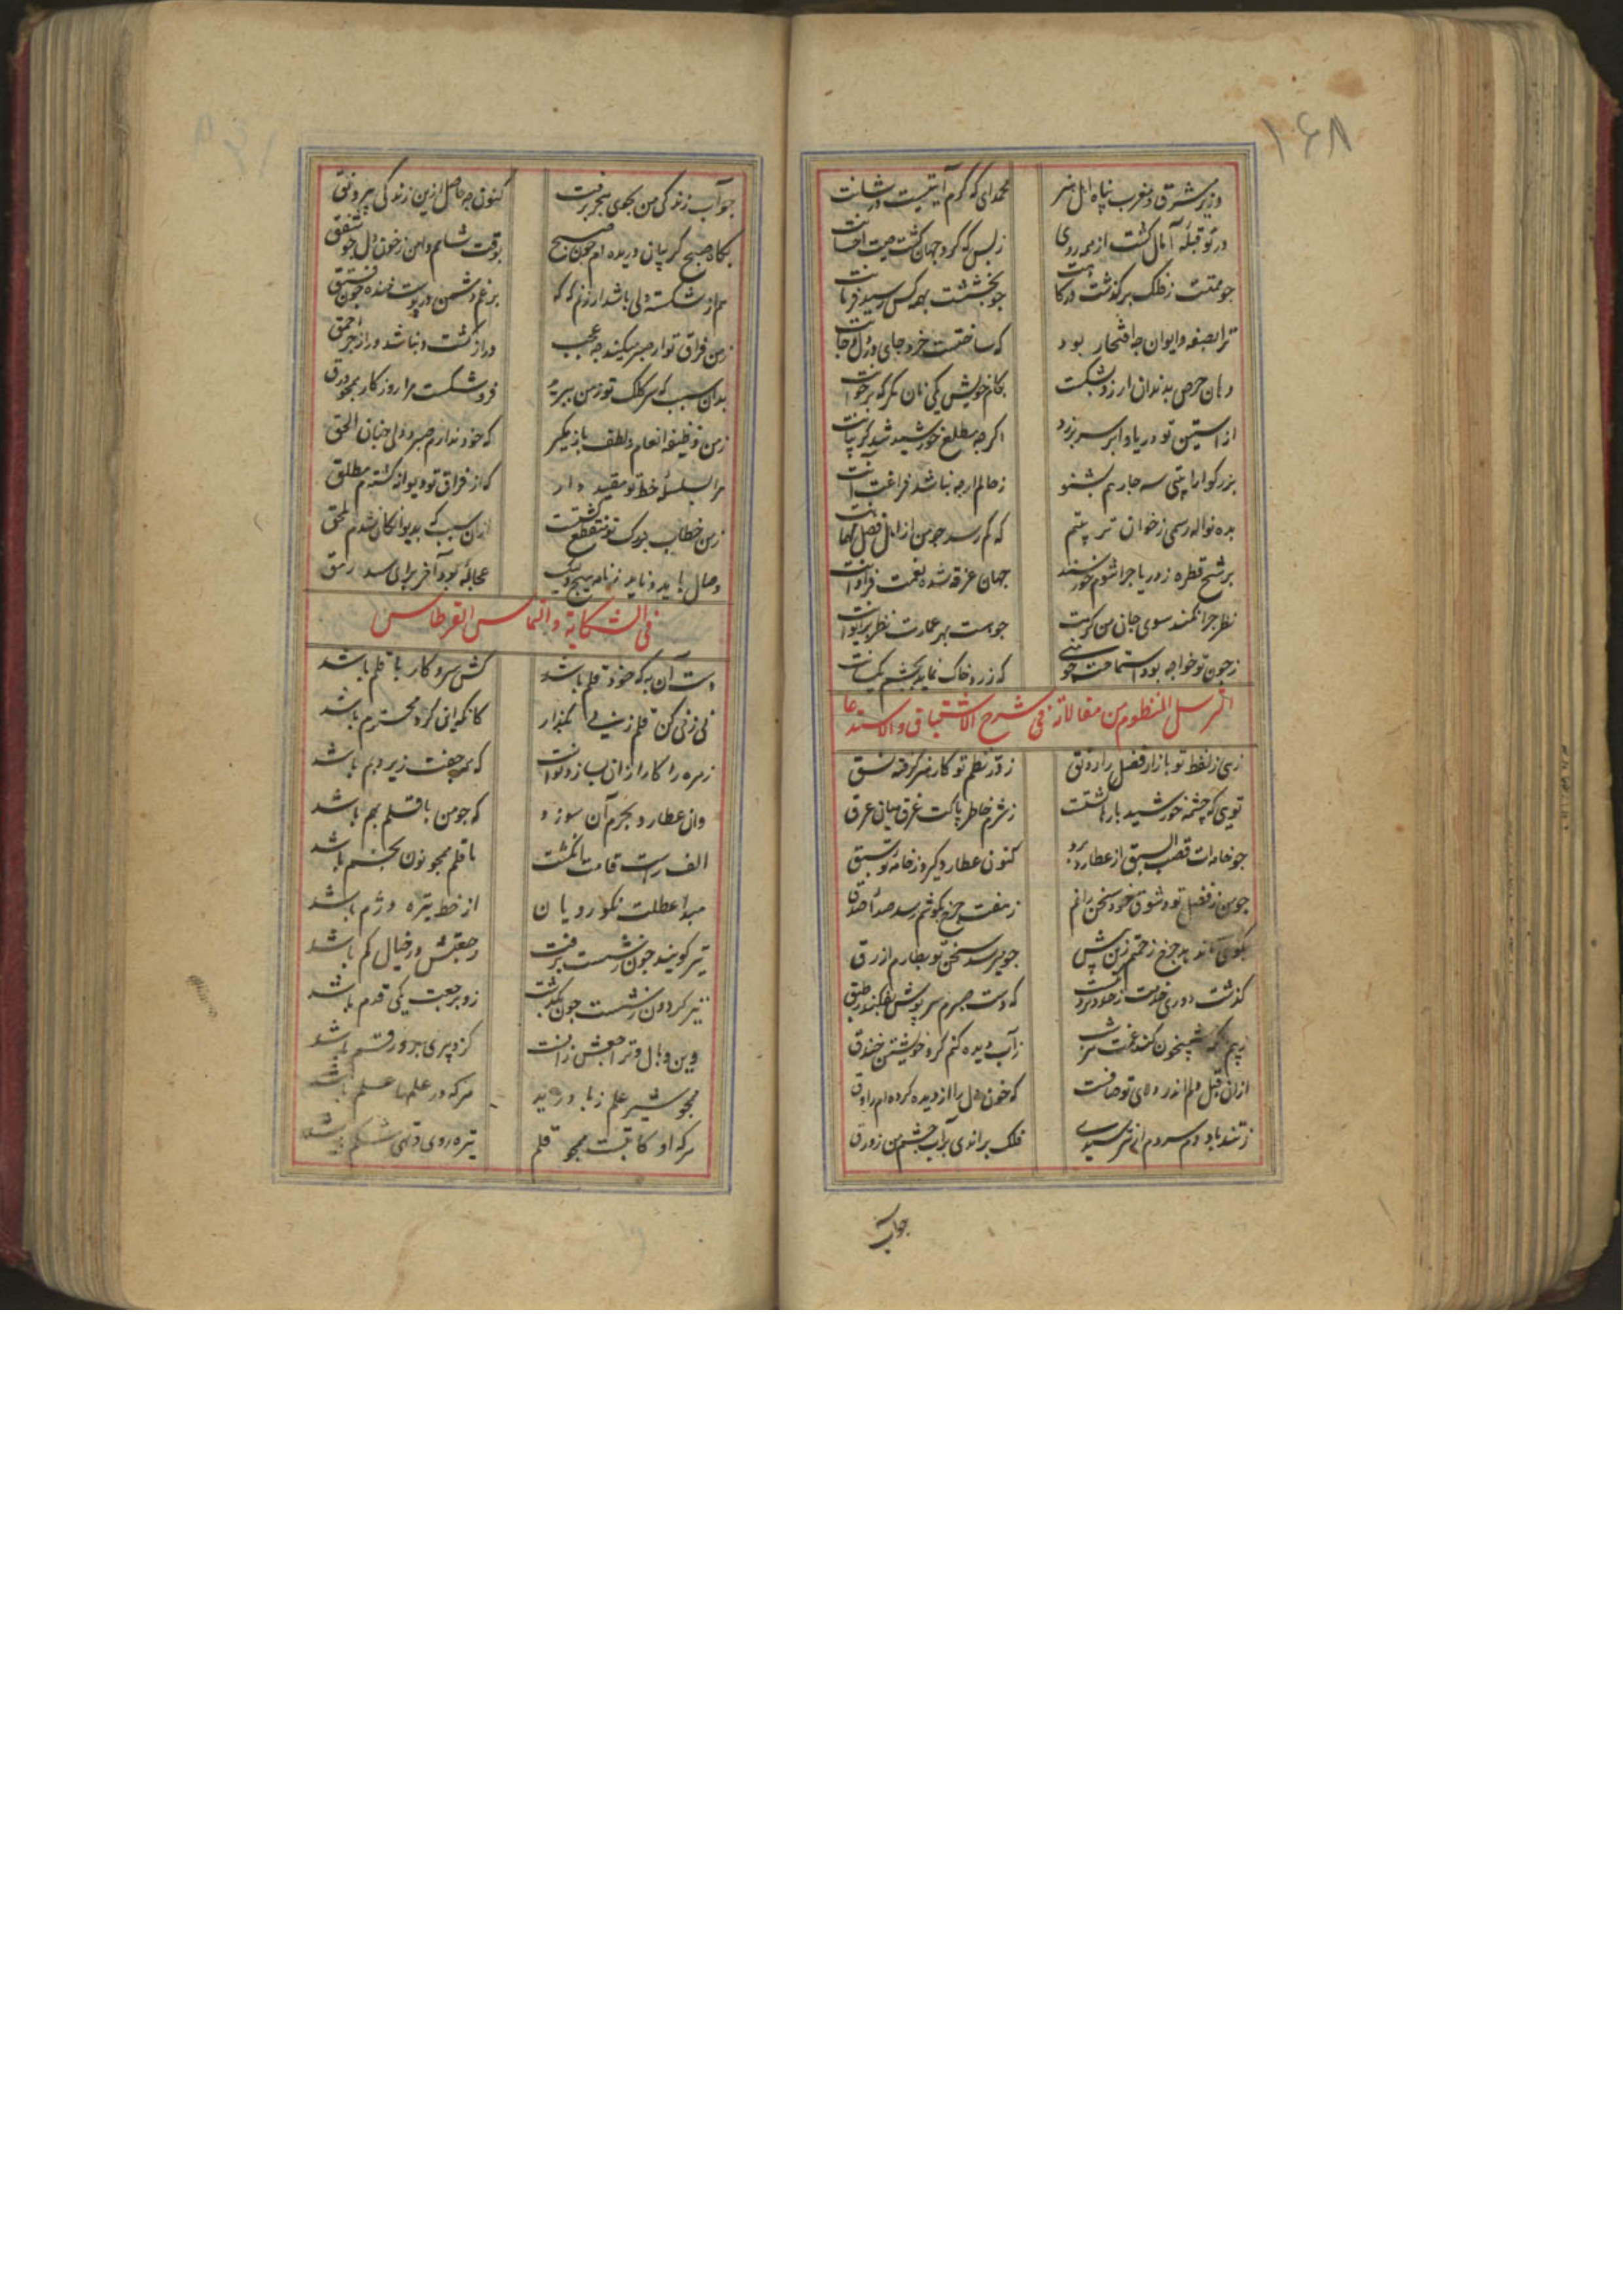 ۱۶۸
وزیر مشرق و مغرب پناه اهل هنر محمد ای که کرم آیتیست در شانت
در تو قبلهٔ آمال گشت از هر روی ز بس که گرد جهان گشت صیت احسانت
جو همتت ز فلک برگذشت جو بخششت بهمه کس رسید فرمانت
ترا بصفه و ایوان جه افتخار بود که ساختست خرد جای در دل و جانت
دهان حرص بدندان ارزو بشکست بکام خویش یکی نان مگر که بر خوانت
از استین تو دریا و ابر سر بر زد اکرجه مطلع خورشید شد کریبانت
بزرکوارا بیتی سه جار هم بشنو ز حالم ارجه نباشد فراغت آنت
بده نواله رسمی ز خوان که کم رسد جو من از اهل فضل مهمانت
برشح قطره ز دریا جرا شوم خورسند جهان غرقه شده نعمت فراوانت
نظر جرا نکند سوی جان من کرمت جو هست بهر عمارت نظر بویرانت
ز جون تو خواجه بود استماحت جو منی که زر و خاک نماید بجشم یکسانت
الترسل المنظوم من مقالاته فی شرح الاشتیاق و الاستدعا
زهی ز لفظ تو بازار فضل را رونق ز در نظم تو کار هنر گرفته نسق
تویی که چشمه خورشید بارها گشتست ز شرم خاطر پاکت غرق میان عرق
جو خامه ات قصب السبق از عطارد برد کنون عطارد گیرد ز خامه تو سبق
جو من ز فضل تو و شوق خود سخن رانم ز هفت جرخ بگوشم رسد صدا صدق
جو بر رسد سخن تو بطارم ازرق
گذشت دوری خدمت ز حد و که دست صبرم سر پوش بفکند ز طبق
ز آب دیده کنم گرد خویشتن خندق
ازان قبل دلم اندر هوای تو صافست که خون دل را از دیده کرده ام راوق
ز تند باد دم سردم ار نترسیدی فلک براندی بر آب جشم من زورق
جواب
جو آب زندگی من بجوی هجر برفت کنون جه حاصل ازین زندگی بی رونق
بگاه صبح گریبان دریده ام جون صبح بوقت شام دامن ز خون دل جو شفق
هم از شکسته دلی باشد ار زنم که که بر غم دشمن در پوست خنده جون فستق
ز من فراق تو ار صبر میکند جه عجب دراز گشت و نباشد دراز جز احمق
بدان سبب که سر کلک تو ز من ببرید فرو شکست مرا روزکار همجو ورق
ز من وظیفه انعام و لطف باز مگیر که خود ندارم صبر و دل جنان الحق
مرا بسلسلهٔ خط تو مقید دار که از فراق تو دیوانه گشته ام مطلق
ز من خطاب تو منقطع گشتست ازان سبب که بدیوانگان شدم ملحق
وصال باید و ناید ز نامه هیج ولیک عجاله بود آخر برای سد رمق
فی الشکایة و التماس القرطاس
دست آن به که خود قلم باشد کش سر و کار با قلم باشد
نی زنی کن قلم زنی بگذار کانکه این کرد محترم باشد
زهره را کار ازان بساز و نواست که همه جفت زیر و بم باشد
وان عطارد بجرم آن سوزد که جو من با قلم بهم باشد
الف راست قامت با قلم همجو نون بخم باشد
مبدا عطلت نکورویان از خط تیره و دژم باشد
تیر کویند جون ز شست برفت رجعتش در خیال کم باشد
تیر کردون ز شست جون بگذشت زو برجعت یکی قدم باشد
وین وبال و تراجعش زانست کز دبیری برو رقم باشد
همجو شیر علم ز باد زید هر که در علمها علم باشد
هر که او کاتبست همجو قلم تیره روی و تهی شکم باشد